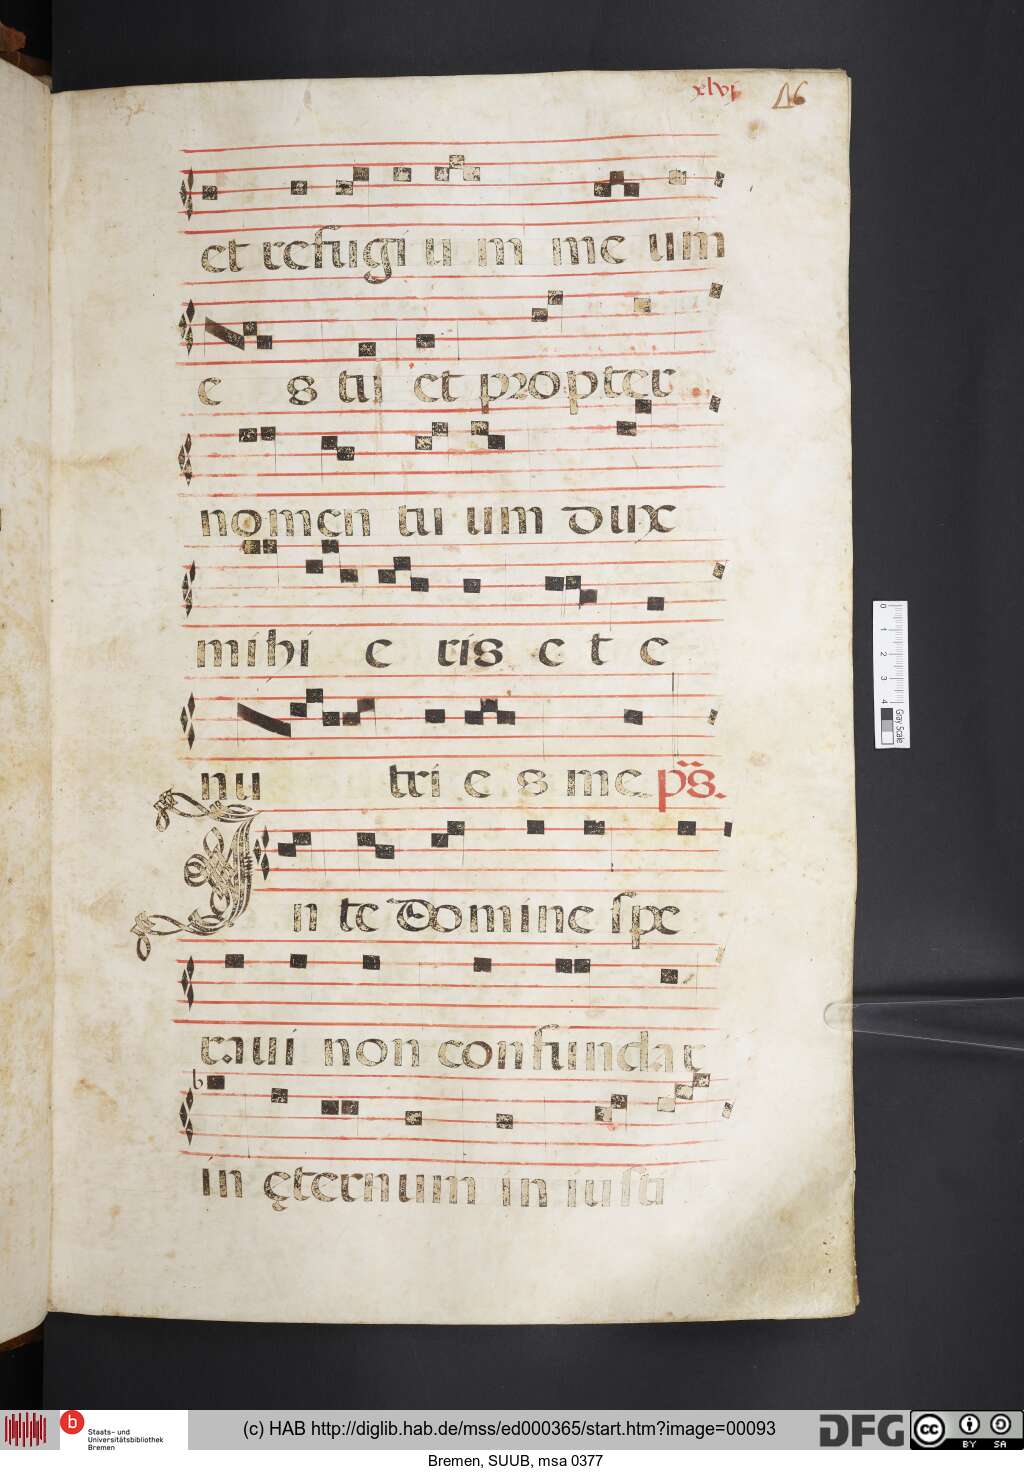 xlvj 46
et refugi u m me um
e s tu et propter
nomen tu um dux
mihi e ris e t e
nu tri e s me. ps.
In te domine spe
raui non confundar
b
in ęternum in iusti
0 1 2 3 4
Gray Scale
b Staats- und
Universitätsbibliothek
Bremen
(c) HAB http://diglib.hab.de/mss/ed000365/start.htm?image=00093
DFG
cc BY SA
Bremen, SUUB, msa 0377